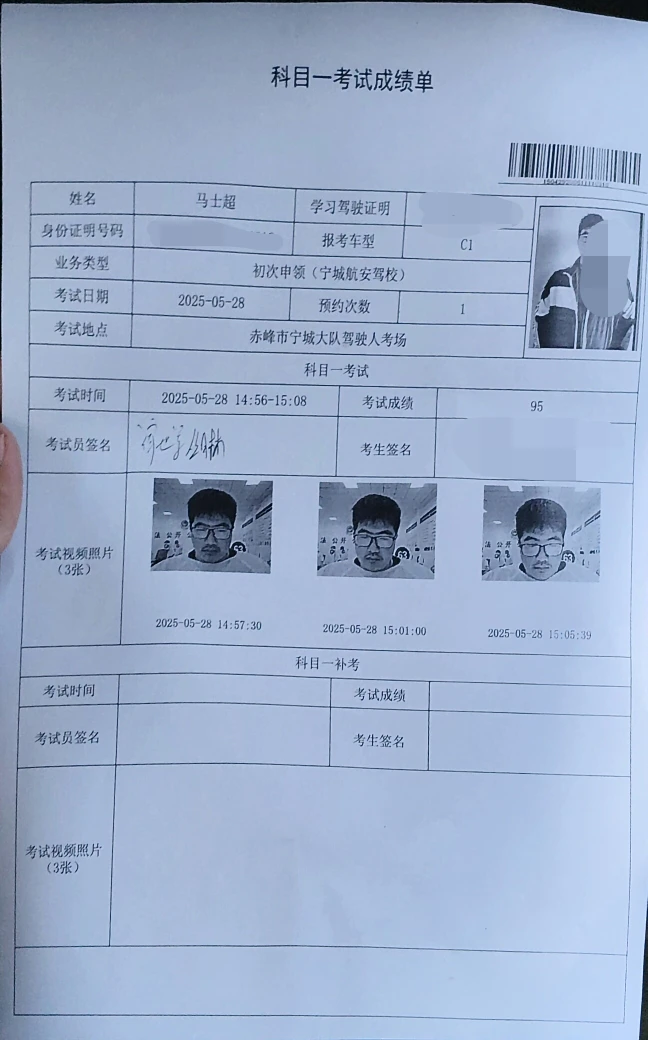 科目一考试成绩单
姓名 马士超 学习驾驶证明
身份证明号码 报考车型 C1
业务类型 初次申领（宁城航安驾校）
考试日期 2025-05-28 预约次数 1
考试地点 赤峰市宁城大队驾驶人考场
科目一考试
考试时间 2025-05-28 14:56-15:08 考试成绩 95
考试员签名 考生签名
考试视频照片
（3张）
法 公 开
63
法 公 开
63
法 公 开
63
2025-05-28 14:57:30 2025-05-28 15:01:00 2025-05-28 15:05:39
科目一补考
考试时间 考试成绩
考试员签名 考生签名
考试视频照片
（3张）